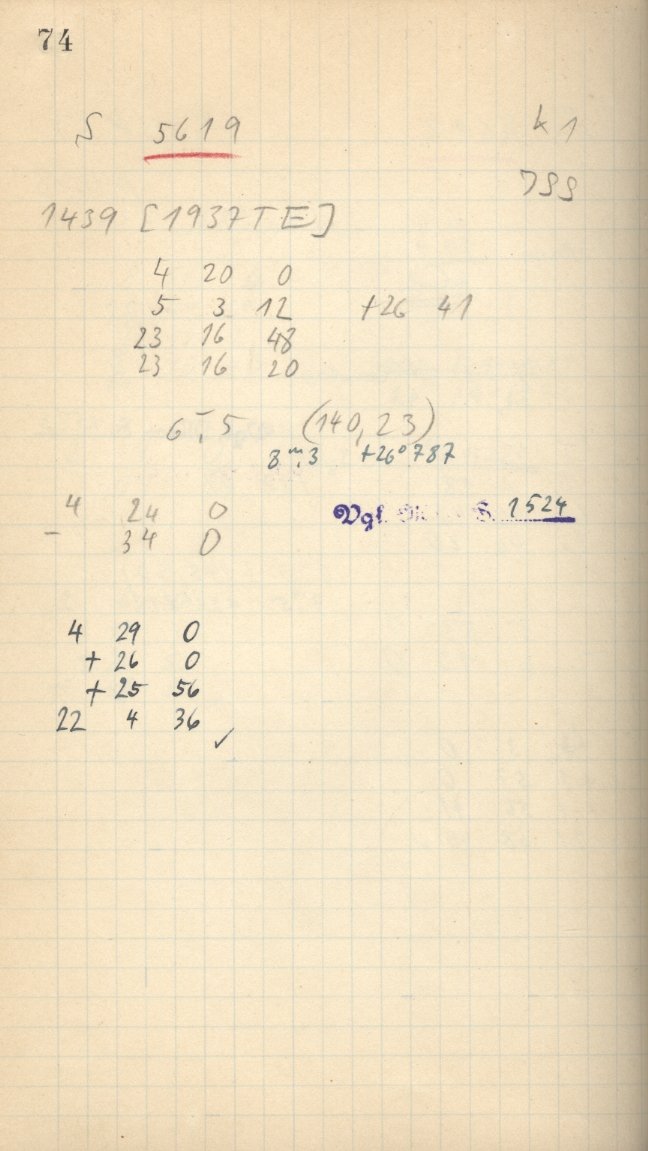 74
S 5619 k 1
1439 [1937TE]
4 20 0
5 3 12 +26 41
23 16 48
23 16 20
6 5 (140,23)
8ᵐ.3 +26°787
4 24 0 Vgl. S. 1524
- 34 0
4 29 0
+ 26 0
+ 25 56
22 4 36 ✓